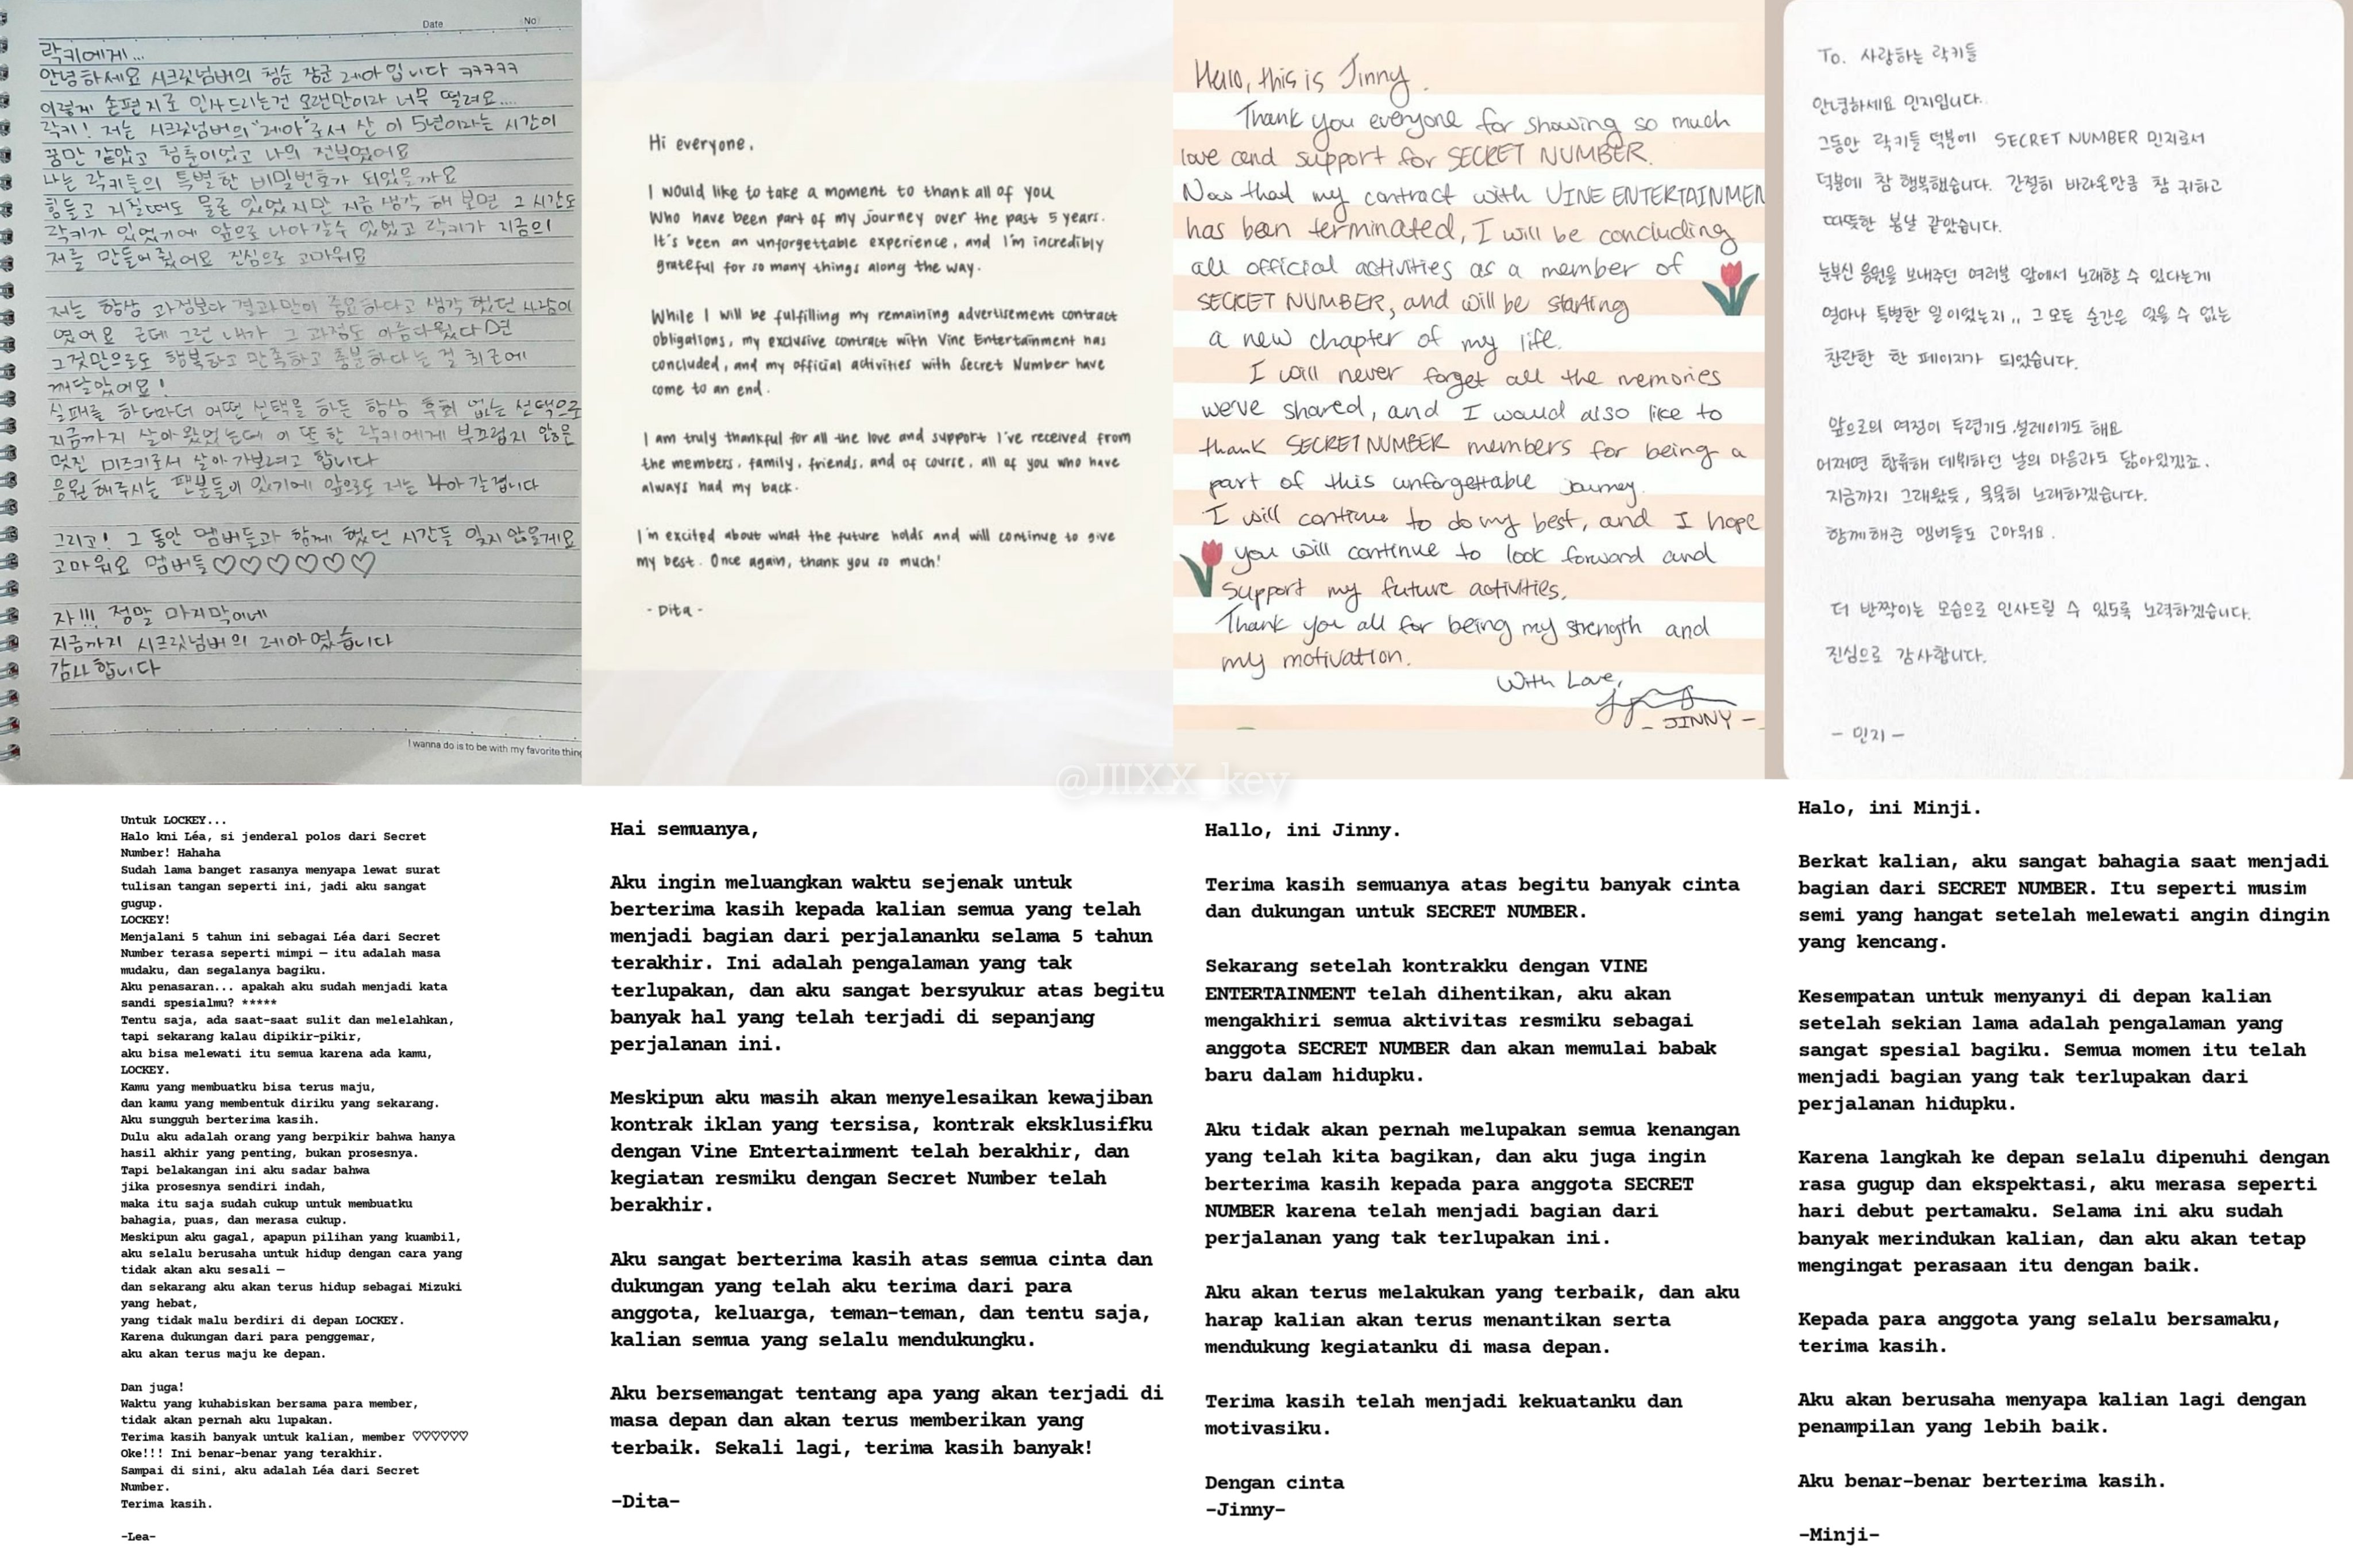 Date No
락키에게...
안녕하세요 시크릿넘버의 청순 장군 레아입니다 ㅋㅋㅋㅋㅋ
이렇게 손편지로 인사드리는건 오랜만이라 너무 떨려요....
락키! 저는 시크릿넘버의 "레아"로서 산 이 5년이라는 시간이
꿈만 같았고 청춘이었고 나의 전부였어요
나는 락키들의 특별한 비밀번호가 되었을까요
힘들고 지칠때도 물론 있었지만 지금 생각 해 보면 그 시간도
락키가 있었기에 앞으로 나아갈수 있었고 락키가 지금의
저를 만들어 줬어요 진심으로 고마워요
저는 항상 과정보다 결과만이 중요하다고 생각 했던 사람이
였어요 근데 그런 내가 그 과정도 아름다웠다면
그것만으로도 행복하고 만족하고 충분하다는 걸 최근에
깨달았어요!
실패를 하더라더 어떤 선택을 하든 항상 후회 없는 선택으로
지금까지 살아왔었는데 이 또한 락키에게 부끄럽지 않은
멋진 미즈키로서 살아가보려고 합니다
응원해주시는 팬분들이 있기에 앞으로도 저는 나아갈겁니다
그리고! 그 동안 멤버들과 함께 했던 시간들 잊지 않을게요
고마워요 멤버들♡♡♡♡♡♡
자!!! 정말 마지막이네
지금까지 시크릿넘버의 레아였습니다
감사합니다
I wanna do is to be with my favorite thin
Hi everyone,
I would like to take a moment to thank all of you
Who have been part of my journey over the past 5 years.
It's been an unforgettable experience, and I'm incredibly
grateful for so many things along the way.
While I will be fulfilling my remaining advertisement contract
obligations, my exclusive contract with Vine Entertainment has
concluded, and my official activities with Secret Number have
come to an end.
I am truly thankful for all the love and support I've received from
the members, family, friends, and of course, all of you who have
always had my back.
I'm excited about what the future holds and will continue to give
my best. Once again, thank you so much!
- Dita -
Hello, this is Jinny.
Thank you everyone for showing so much
love and support for SECRET NUMBER.
Now that my contract with VINE ENTERTAINMEN
has been terminated, I will be concluding
all official activities as a member of
SECRET NUMBER, and will be starting
a new chapter of my life.
I will never forget all the memories
we've shared, and I would also like to
thank SECRET NUMBER members for being a
part of this unforgettable journey.
I will continue to do my best, and I hope
you will continue to look forward and
support my future activities.
Thank you all for being my strength and
my motivation.
With Love,
- JINNY -
To. 사랑하는 락키들
안녕하세요 민지입니다.
그동안 락키들 덕분에 SECRET NUMBER 민지로서
덕분에 참 행복했습니다. 간절히 바라온만큼 참 귀하고
따뜻한 봄날 같았습니다.
눈부신 응원을 보내주던 여러분 앞에서 노래할 수 있다는게
얼마나 특별한 일이었는지.. 그 모든 순간은 잊을 수 없는
찬란한 한 페이지가 되었습니다.
앞으로의 여정이 두렵기도 설레이기도 해요
어쩌면 합류해 데뷔하던 날의 마음과도 닮아있겠죠.
지금까지 그래왔듯, 묵묵히 노래하겠습니다.
함께해준 멤버들도 고마워요.
더 반짝이는 모습으로 인사드릴 수 있도록 노력하겠습니다.
진심으로 감사합니다.
- 민지 -
@JIIXX_key
Untuk LOCKEY...
Halo kni Léa, si jenderal polos dari Secret
Number! Hahaha
Sudah lama banget rasanya menyapa lewat surat
tulisan tangan seperti ini, jadi aku sangat
gugup.
LOCKEY!
Menjalani 5 tahun ini sebagai Léa dari Secret
Number terasa seperti mimpi — itu adalah masa
mudaku, dan segalanya bagiku.
Aku penasaran... apakah aku sudah menjadi kata
sandi spesialmu? *****
Tentu saja, ada saat-saat sulit dan melelahkan,
tapi sekarang kalau dipikir-pikir,
aku bisa melewati itu semua karena ada kamu,
LOCKEY.
Kamu yang membuatku bisa terus maju,
dan kamu yang membentuk diriku yang sekarang.
Aku sungguh berterima kasih.
Dulu aku adalah orang yang berpikir bahwa hanya
hasil akhir yang penting, bukan prosesnya.
Tapi belakangan ini aku sadar bahwa
jika prosesnya sendiri indah,
maka itu saja sudah cukup untuk membuatku
bahagia, puas, dan merasa cukup.
Meskipun aku gagal, apapun pilihan yang kuambil,
aku selalu berusaha untuk hidup dengan cara yang
tidak akan aku sesali —
dan sekarang aku akan terus hidup sebagai Mizuki
yang hebat,
yang tidak malu berdiri di depan LOCKEY.
Karena dukungan dari para penggemar,
aku akan terus maju ke depan.
Dan juga!
Waktu yang kuhabiskan bersama para member,
tidak akan pernah aku lupakan.
Terima kasih banyak untuk kalian, member ♡♡♡♡♡♡
Oke!!! Ini benar-benar yang terakhir.
Sampai di sini, aku adalah Léa dari Secret
Number.
Terima kasih.
-Lea-
Hai semuanya,
Aku ingin meluangkan waktu sejenak untuk
berterima kasih kepada kalian semua yang telah
menjadi bagian dari perjalananku selama 5 tahun
terakhir. Ini adalah pengalaman yang tak
terlupakan, dan aku sangat bersyukur atas begitu
banyak hal yang telah terjadi di sepanjang
perjalanan ini.
Meskipun aku masih akan menyelesaikan kewajiban
kontrak iklan yang tersisa, kontrak eksklusifku
dengan Vine Entertainment telah berakhir, dan
kegiatan resmiku dengan Secret Number telah
berakhir.
Aku sangat berterima kasih atas semua cinta dan
dukungan yang telah aku terima dari para
anggota, keluarga, teman-teman, dan tentu saja,
kalian semua yang selalu mendukungku.
Aku bersemangat tentang apa yang akan terjadi di
masa depan dan akan terus memberikan yang
terbaik. Sekali lagi, terima kasih banyak!
-Dita-
Hallo, ini Jinny.
Terima kasih semuanya atas begitu banyak cinta
dan dukungan untuk SECRET NUMBER.
Sekarang setelah kontrakku dengan VINE
ENTERTAINMENT telah dihentikan, aku akan
mengakhiri semua aktivitas resmiku sebagai
anggota SECRET NUMBER dan akan memulai babak
baru dalam hidupku.
Aku tidak akan pernah melupakan semua kenangan
yang telah kita bagikan, dan aku juga ingin
berterima kasih kepada para anggota SECRET
NUMBER karena telah menjadi bagian dari
perjalanan yang tak terlupakan ini.
Aku akan terus melakukan yang terbaik, dan aku
harap kalian akan terus menantikan serta
mendukung kegiatanku di masa depan.
Terima kasih telah menjadi kekuatanku dan
motivasiku.
Dengan cinta
-Jinny-
Halo, ini Minji.
Berkat kalian, aku sangat bahagia saat menjadi
bagian dari SECRET NUMBER. Itu seperti musim
semi yang hangat setelah melewati angin dingin
yang kencang.
Kesempatan untuk menyanyi di depan kalian
setelah sekian lama adalah pengalaman yang
sangat spesial bagiku. Semua momen itu telah
menjadi bagian yang tak terlupakan dari
perjalanan hidupku.
Karena langkah ke depan selalu dipenuhi dengan
rasa gugup dan ekspektasi, aku merasa seperti
hari debut pertamaku. Selama ini aku sudah
banyak merindukan kalian, dan aku akan tetap
mengingat perasaan itu dengan baik.
Kepada para anggota yang selalu bersamaku,
terima kasih.
Aku akan berusaha menyapa kalian lagi dengan
penampilan yang lebih baik.
Aku benar-benar berterima kasih.
-Minji-